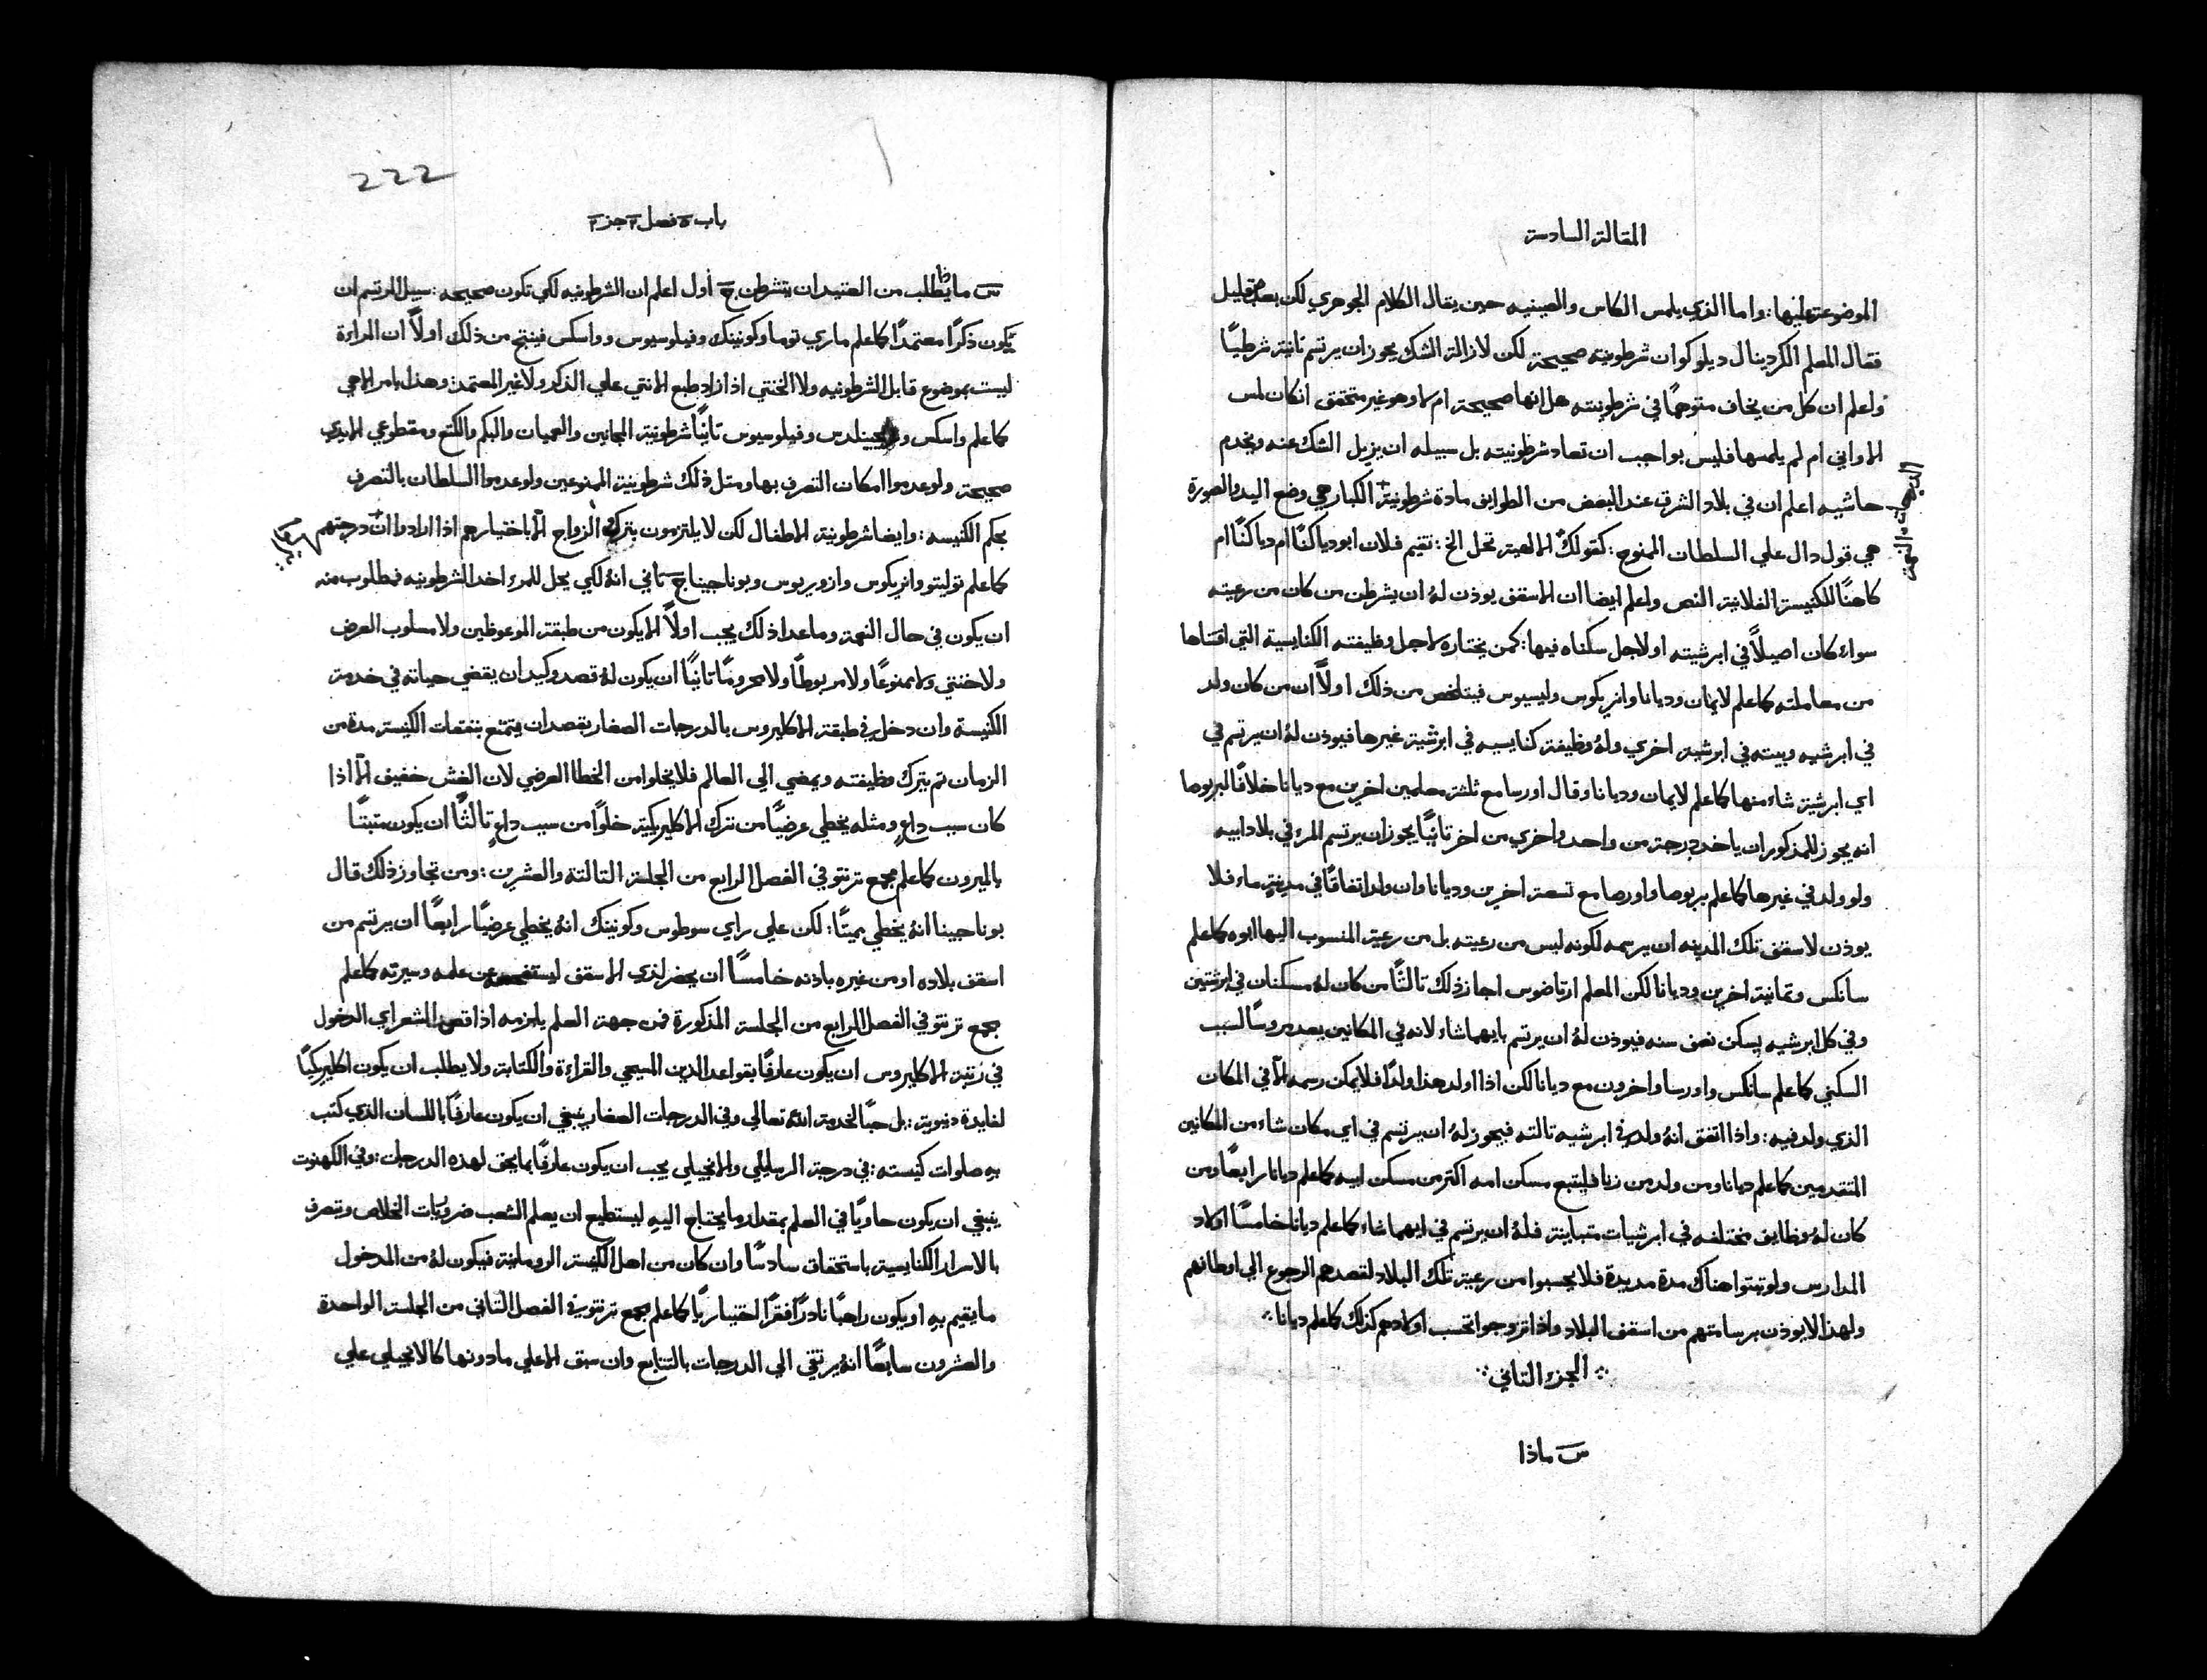 المقالة السادسة
الموضوعة عليها : واما الذي يلمس الكاس والصينيه حين يقال الكلام الجوهري لكن بعده بقليل
فقال المعلم الكردينال ديلوكو ان شرطونيته صحيحة لكن لازالة الشك يجوز ان يرتسم ثانية شرطيًا
واعلم ان كل من يخاف متوهمًا في شرطونيته هل انها صحيحة ام لا وهو غير متحقق انكان لمس
الاواني ام لم يلمسها فليس بواجب ان تعاد شرطونيته بل سبيله ان يزيل الشك عنه ويخدم
حاشيه اعلم ان في بلاد الشرق عند البعض من الطوايف مادة شرطونية الكبار هي وضع اليد والصورة
هي قول دال علي السلطان الممنوح : كقولك الالهية تحل الخ : نقيم فلان ابودياكنًا ام دياكنًا ام
كاهنًا للكنيسة الفلانية النص واعلم ايضا ان الاسقف يوذن لهُ ان يشرطن من كان من رعيته
سواء كان اصيلاً في ابرشيته او لاجل سكناه فيها : كمن يختاره لاجل وظيفته الكنايسية التي اقتناها
من معاملته كما علم لايمان وديانا وانريكوس وليسيوس فيتلخص من ذلك اولاً ان من كان ولد
في ابرشيه وبيته في ابرشية اخري ولهُ وظيفة كنايسيه في ابرشية غيرها فيوذن لهُ ان يرتسم في
اي ابرشية شاء منها كما علم لايمان وديانا وقال اورسا مع ثلثة معلمين اخرين مع ديانا خلافًا لبربوصا
انه يجوز للمذكور ان ياخد درجة من واحد واخري من اخر ثانيًا يجوز ان يرتسم المرء في بلاد ابيه
ولو ولد في غيرها كما علم بربوصا واورصا مع تسعة اخرين وديانا وان ولد اتفاقًا في مدينةٍ ماء فلا
يوذن لاسقف تلك المدينه ان يرسمه لكونه ليس من رعيته بل من رعية المنسوب اليها ابوه كما علم
سانكس وثمانية اخرين وديانا لكن المعلم ارتاضوس اجاز ذلك ثالثًا من كان لهُ مسكنان في ابرشتين
وفي كل ابرشيه يسكن نصف سنه فيوذن لهُ ان يرتسم بايهما شاء لانه في المكانين يعد مروسًا لسبب
السكني كما علم سانكس واورسا واخرون مع ديانا لكن اذا اولد هذا ولدًا فلا يمكن رسمه الا في المكان
الذي ولد فيه : واذا اتفق انهُ ولد في ابرشيه ثالثه فيجوز لهُ ان يرتسم في اي مكان شاء من المكانين
المتقدمين كما علم ديانا ومن ولد من زنا فليتبع مسكن امه اكتر من مسكن ابيه كما علم ديانا رابعًا ومن
كان لهُ وظايف مختلفه في ابرشيات متباينة فلهُ ان يرتسم في ايهما شاء كما علم ديانا خامسًا اولاد
المدارس ولو ثبتوا هناك مدة مديدة فلا يحسبوا من رعية تلك البلاد لقصدهم الرجوع الي اوطانهم
ولهذا لا يوذن برسامتهم من اسقف البلاد واذا تزوجوا تحسب اولادهم كذلك كما علم ديانا :
: الجزء الثاني :
س ماذا
222
باب ٥ فصل ٣ جز ٢
س ماذا يطلب من العتيد ان يتشرطن ج أول اعلم ان الشرطونيه لكي تكون صحيحه : سبيل المرتسم ان
يكون ذكرًا معتمدًا كما علم ماري توما وكونينك وفيلوسيوس وواسكس فينتج من ذلك اولاً ان المراءة
ليست بموضوع قابل الشرطونيه ولا الخنتي اذا زاد طبع الانتي علي الذكر ولا غير المعتمد وهذا بامر الاهي
كما علم واسكس و وفيلوسيوس ثانيًا شرطونية المجانين والعميان والبكم والكتع ومقطوعي الايدي
صحيحة ولو عدموا امكان التصرف بها ومثل ذلك شرطونية الممنوعين ولو عدموا السلطان بالتصرف
بحكم الكنيسه : وايضا شرطونية الاطفال لكن لا يلتزمون بترك الزواج الا باختيارهم اذا ارادوا درجتهم
كما علم توليتو وانريكوس وازوريوس وبوناجينا ج ثاني انهُ لكي يحل للمرء اخد الشرطونيه فمطلوب منه
ان يكون في حال النعمة وما عدا ذلك يجب اولاً الا يكون من طبقة الموعوظين ولا مسلوب العرض
ولا خنتي ولا ممنوعًا ولا مربوطًا ولا محرومًا ثانيًا ان يكون لهُ قصد وكيد ان يقضي حياته في خدمة
الكنيسة وان دخل في طبقة الاكليروس بالدرجات الصغار بقصد ان يتمتع بنفقات الكنيسة مدة من
الزمان ثم يترك وظيفته ويمضي الي العالم فلا يخلوا من الخطا العرضي لان الغش خفيف الا اذا
كان سبب داعٍ ومثله يخطي عرضيًا من ترك الاكليريكية خلوًا من سبب داعٍ ثالثًا ان يكون مثبتًا
بالميرون كما علم مجمع ترنتو في الفصل الرابع من الجلسة الثالثة والعشرين : ومن تجاوز ذلك قال
بوناجينا انهُ يخطي مميتًا : لكن علي راي سوطوس وكونينك انهُ يخطي عرضيًا رابعًا ان يرتسم من
اسقف بلاده او من غيره باذنه خامسًا ان يحضر لذي الاسقف ليستفحص عن علمه وسيرته كما علم
مجمع ترنتو في الفصل الرابع من الجلسة المذكورة فمن جهة العلم يلزمه اذا قص الشعر اي الدخول
في رتبة الاكليروس ان يكون عارفًا بقواعد الدين المسيحي والقراءة والكتابة ولا يطلب ان يكون اكليريكيًا
لفايدة دنيوية : بل حبًا لخدمة الله تعالي وفي الدرجات الصغار ينبغي ان يكون عارفًا باللسان الذي كتب
به صلوات كنيسته : في درجة الرسايلي والانجيلي يجب ان يكون عارفًا بما يخص لهذه الدرجات : وفي الكهنوت
ينبغي ان يكون حاويًا في العلم بمقدار ما يحتاج اليهِ ليستطيع ان يعلم الشعب ضروريات الخلاص ويتصرف
بالاسرار الكنايسية باستحقاق سادسًا وان كان من اهل الكنيسة الرومانية فيكون لهُ من المدخول
ما يقيم بهِ او يكون راهبًا نادرًا فقرًا اختياريًا كما علم مجمع ترنتو في الفصل الثاني من الجلسة الواحدة
والعشرون سابعًا انهُ يرتقي الي الدرجات بالتتابع وان سبق الاعلي مادونها كالانجيلي علي